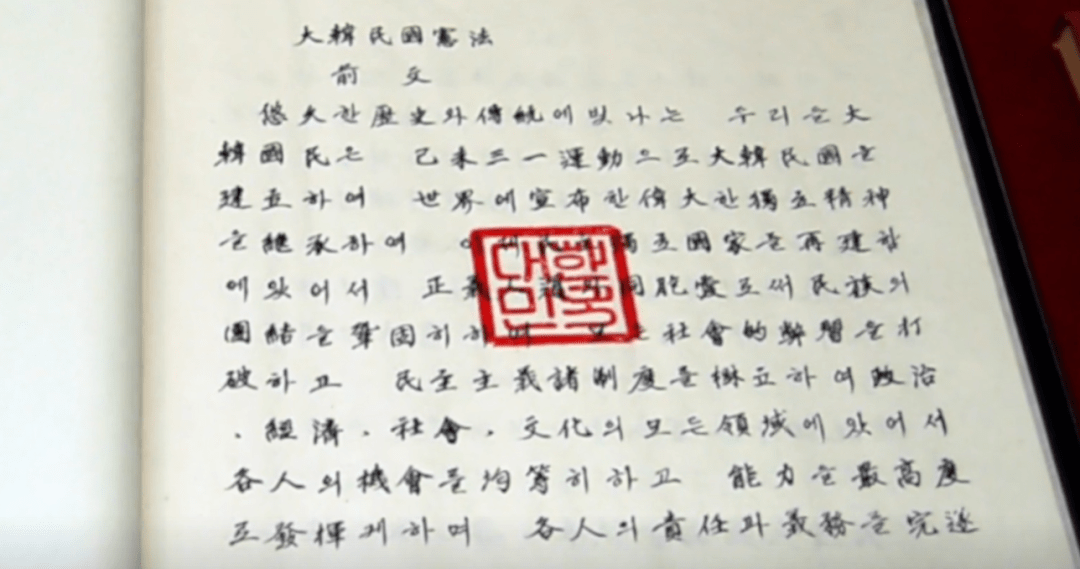 大韓民國憲法
前 文
悠久한 歷史와 傳統에 빛나는 우리들 大
韓國民은 己未三一運動으로 大韓民國을
建立하여 世界에 宣布한 偉大한 獨立精神
을 繼承하여 獨立國家를 再建함
에 있어서 正義人道와 同胞愛로써 民族의
團結을 鞏固히하며 모든 社會的 弊習을 打
破하고 民主主義諸制度를 樹立하여 政治
、經濟、社會、文化의 모든 領域에 있어서
各人의 機會를 均等히하고 能力을 最高度
로 發揮케하며 各人의 責任과 義務를 完遂
대한민국